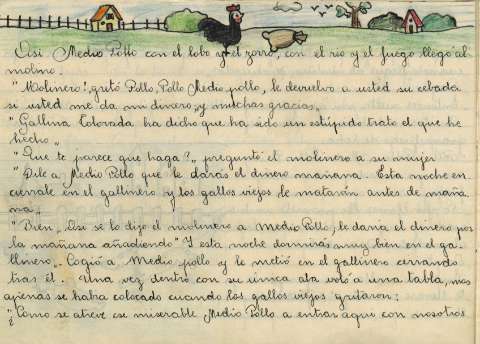 Asi Medio Pollo con el lobo y el zorro, con el rio y el fuego llegó al
molino.
"Molinero! gritó Pollo, Pollo Medio pollo, le devuelvo a usted su cebada
si usted me da mi dinero, y muchas gracias„
"Gallina Colorada ha dicho que ha sido un estúpido trato el que he
hecho„
"Que te parece que haga?„ preguntó el molinero a su mujer
"Dile a Medio Pollo que le daras el dinero mañana. Esta noche en
cierrale en el gallinero y los gallos viejos le mataran antes de maña
na„
"Bien, Asi se lo dijo el molinero a Medio Pollo, le daria el dinero por
la mañana añadiendo "Y esta noche dormiras muy bien en el ga-
llinero. Cogió a Medio pollo y le metió en el gallinero cerrando
tras él. Una vez dentro con su unica ala voló a una tabla, mas
apenas se habia colocado cuando los gallos viejos gritaron:
"¿Como se atreve ese miserable Medio Pollo a entrar aqui con nosotros